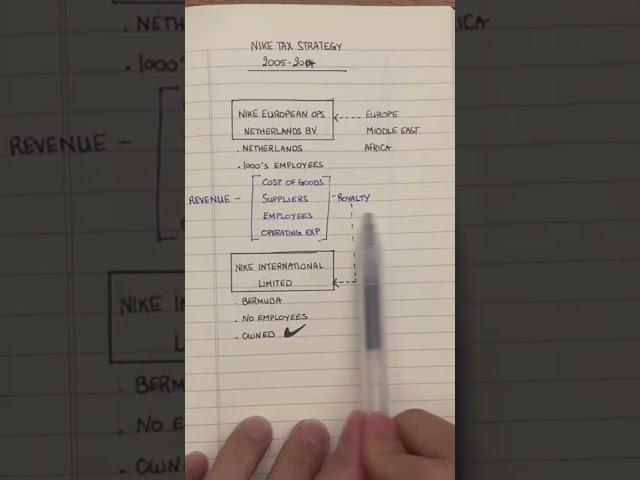 NIKE TAX STRATEGY
2005-2014
NIKE EUROPEAN OPS
NETHERLANDS BV.
EUROPE
MIDDLE EAST
AFRICA
. NETHERLANDS
. 1000'S EMPLOYEES
REVENUE -
COST OF GOODS
SUPPLIERS
EMPLOYEES
OPERATING EXP
- ROYALTY
NIKE INTERNATIONAL
LIMITED
. BERMUDA
. NO EMPLOYEES
. OWNED ✓